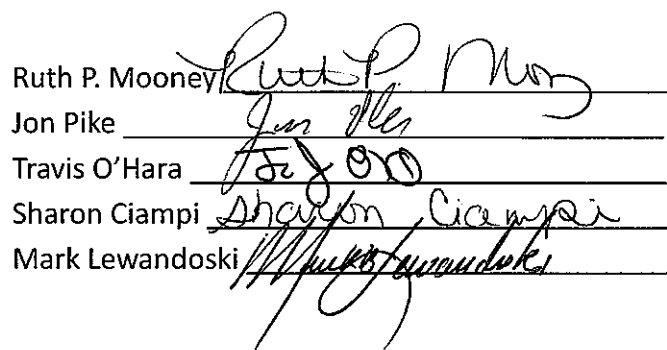 Ruth P. Mooney Ruth P.
Jon Pike
Travis O'Hara
Sharon Ciampi Sharon Ciampi
Mark Lewandoski Mark Lewandoski